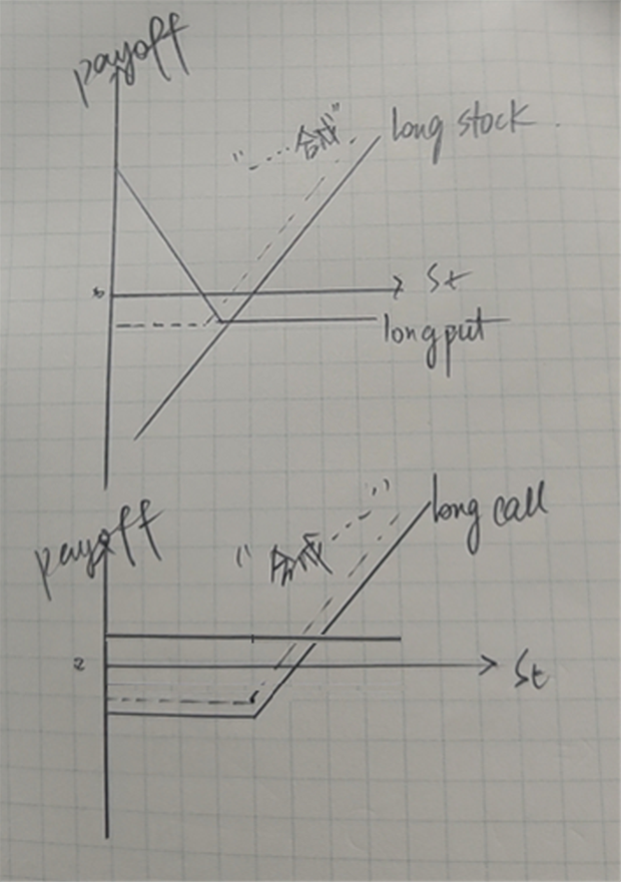 payoff
"---- 合成"
long stock
St
long put
payoff
"合成 ----"
long call
St